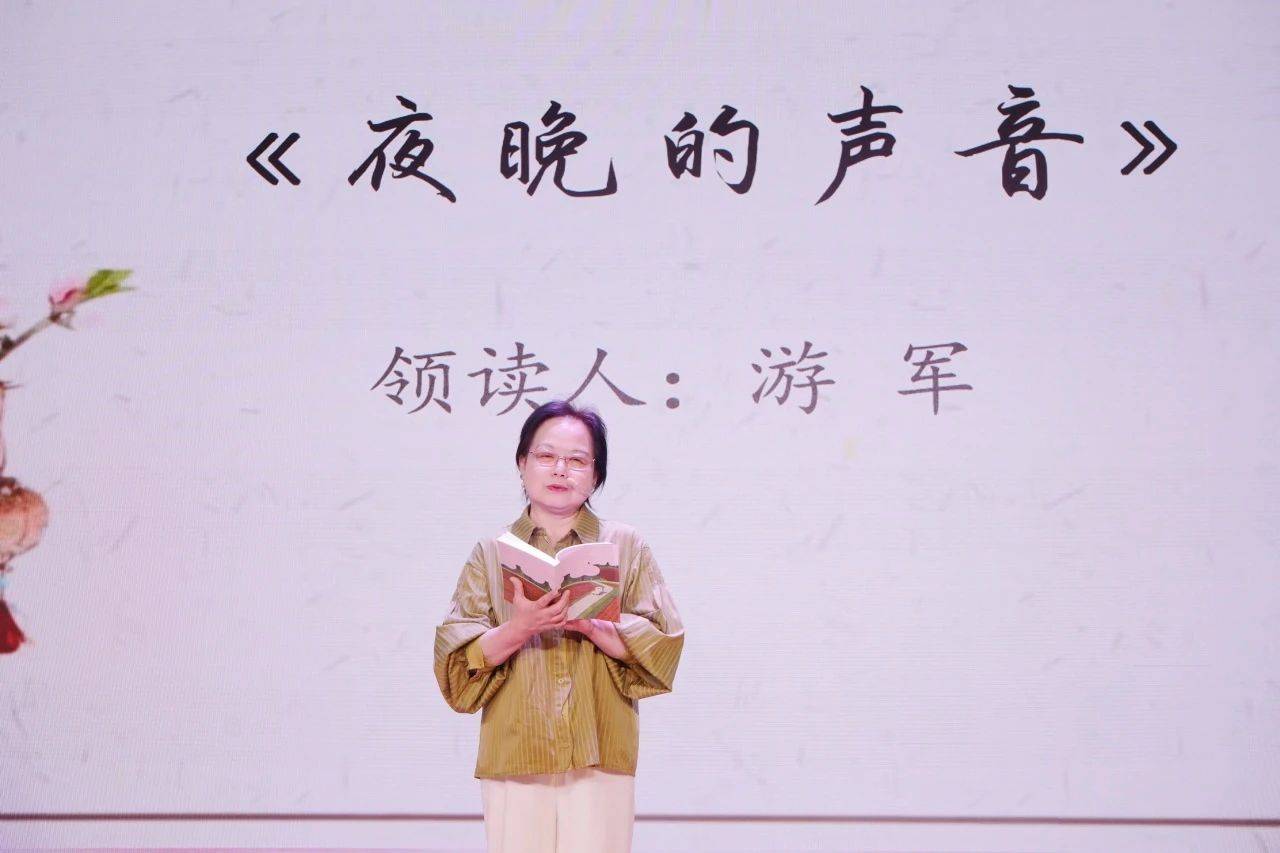 《夜晚的声音》
领读人：游 军